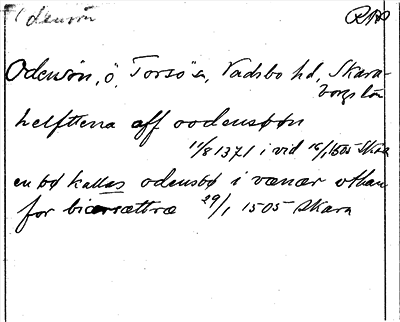 Odensön RAp
Odensön, ö, Torsö sn, Vadsbo hd, Skara-
borgs län
helfttena aff oodensøøn
11/8 1371 i vid 16/1 1505 Skara
en bø kallas odensbø i vænær vthan
for biærsættræ 29/1 1505 Skara